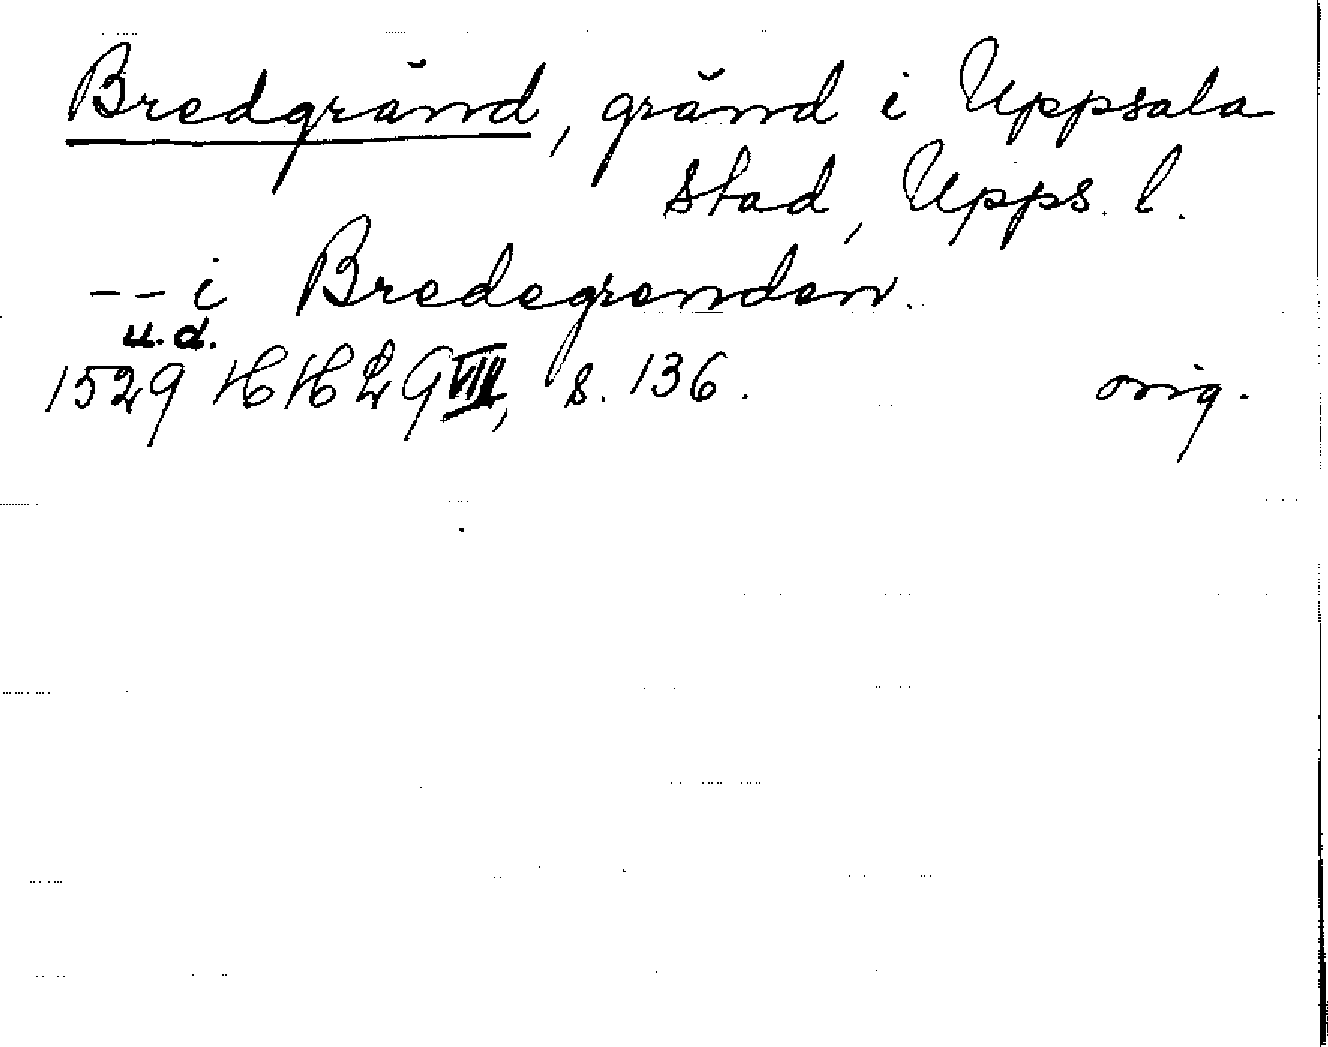 Bredgränd, gränd i Uppsala
stad, Upps. l.
-- i Bredegrenden.
u.d.
1529 HH 29 VIII, s. 136. orig.